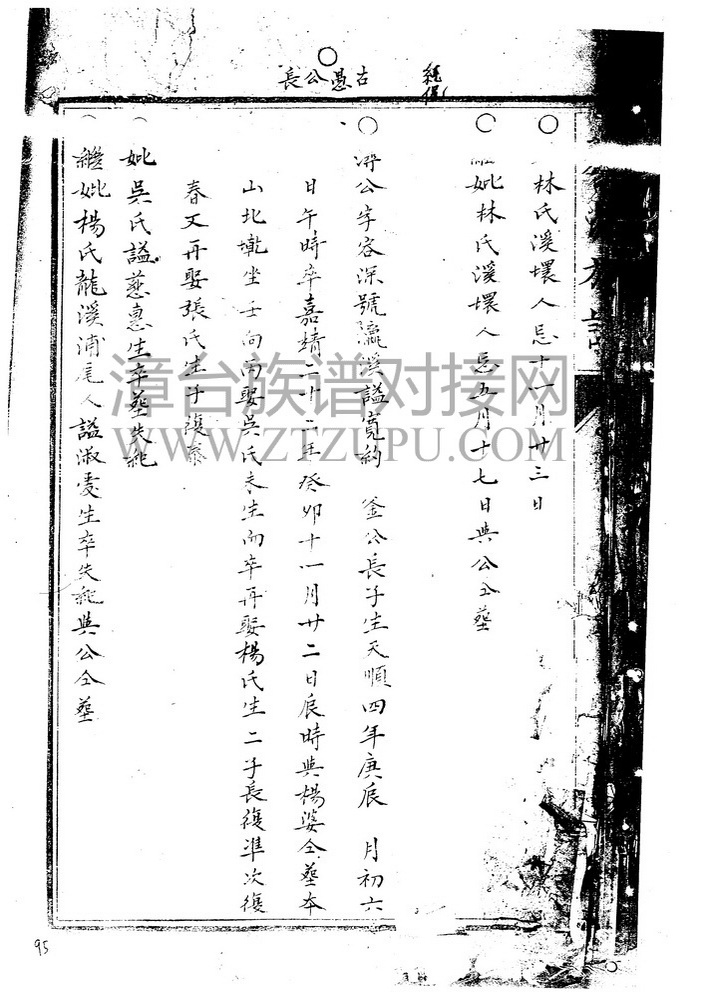 古愚公長
林氏溪壞人忌十一月廿三日
妣林氏溪壞人忌五月十七日與公仝塟
公字容深號瀛溪謚寬約 釜公長子生天順四年庚辰 月初六
日午時卒嘉靖二十二年癸卯十一月廿二日辰時與楊婆仝塟本
山北 坐壬向丙娶吳氏未生而卒再娶楊氏生二子長復準次復
春又再娶張氏生子復
妣吳氏謚慈惠生卒塟失紀
繼妣楊氏龍溪浦尾人謚淑愛生卒失紀與公仝塟
漳台族谱对接网
WWW.ZTZUPU.COM
95